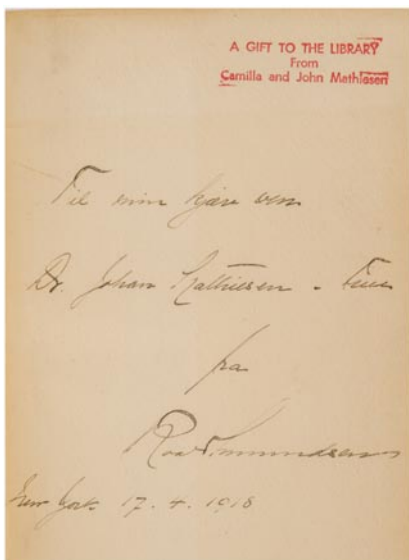 A GIFT TO THE LIBRARY
From
Camilla and John Mathiesen
Til min kjære ven
Dr. Johan Mathiesen -
fra
Roald Amundsen
New York 17.4.1918